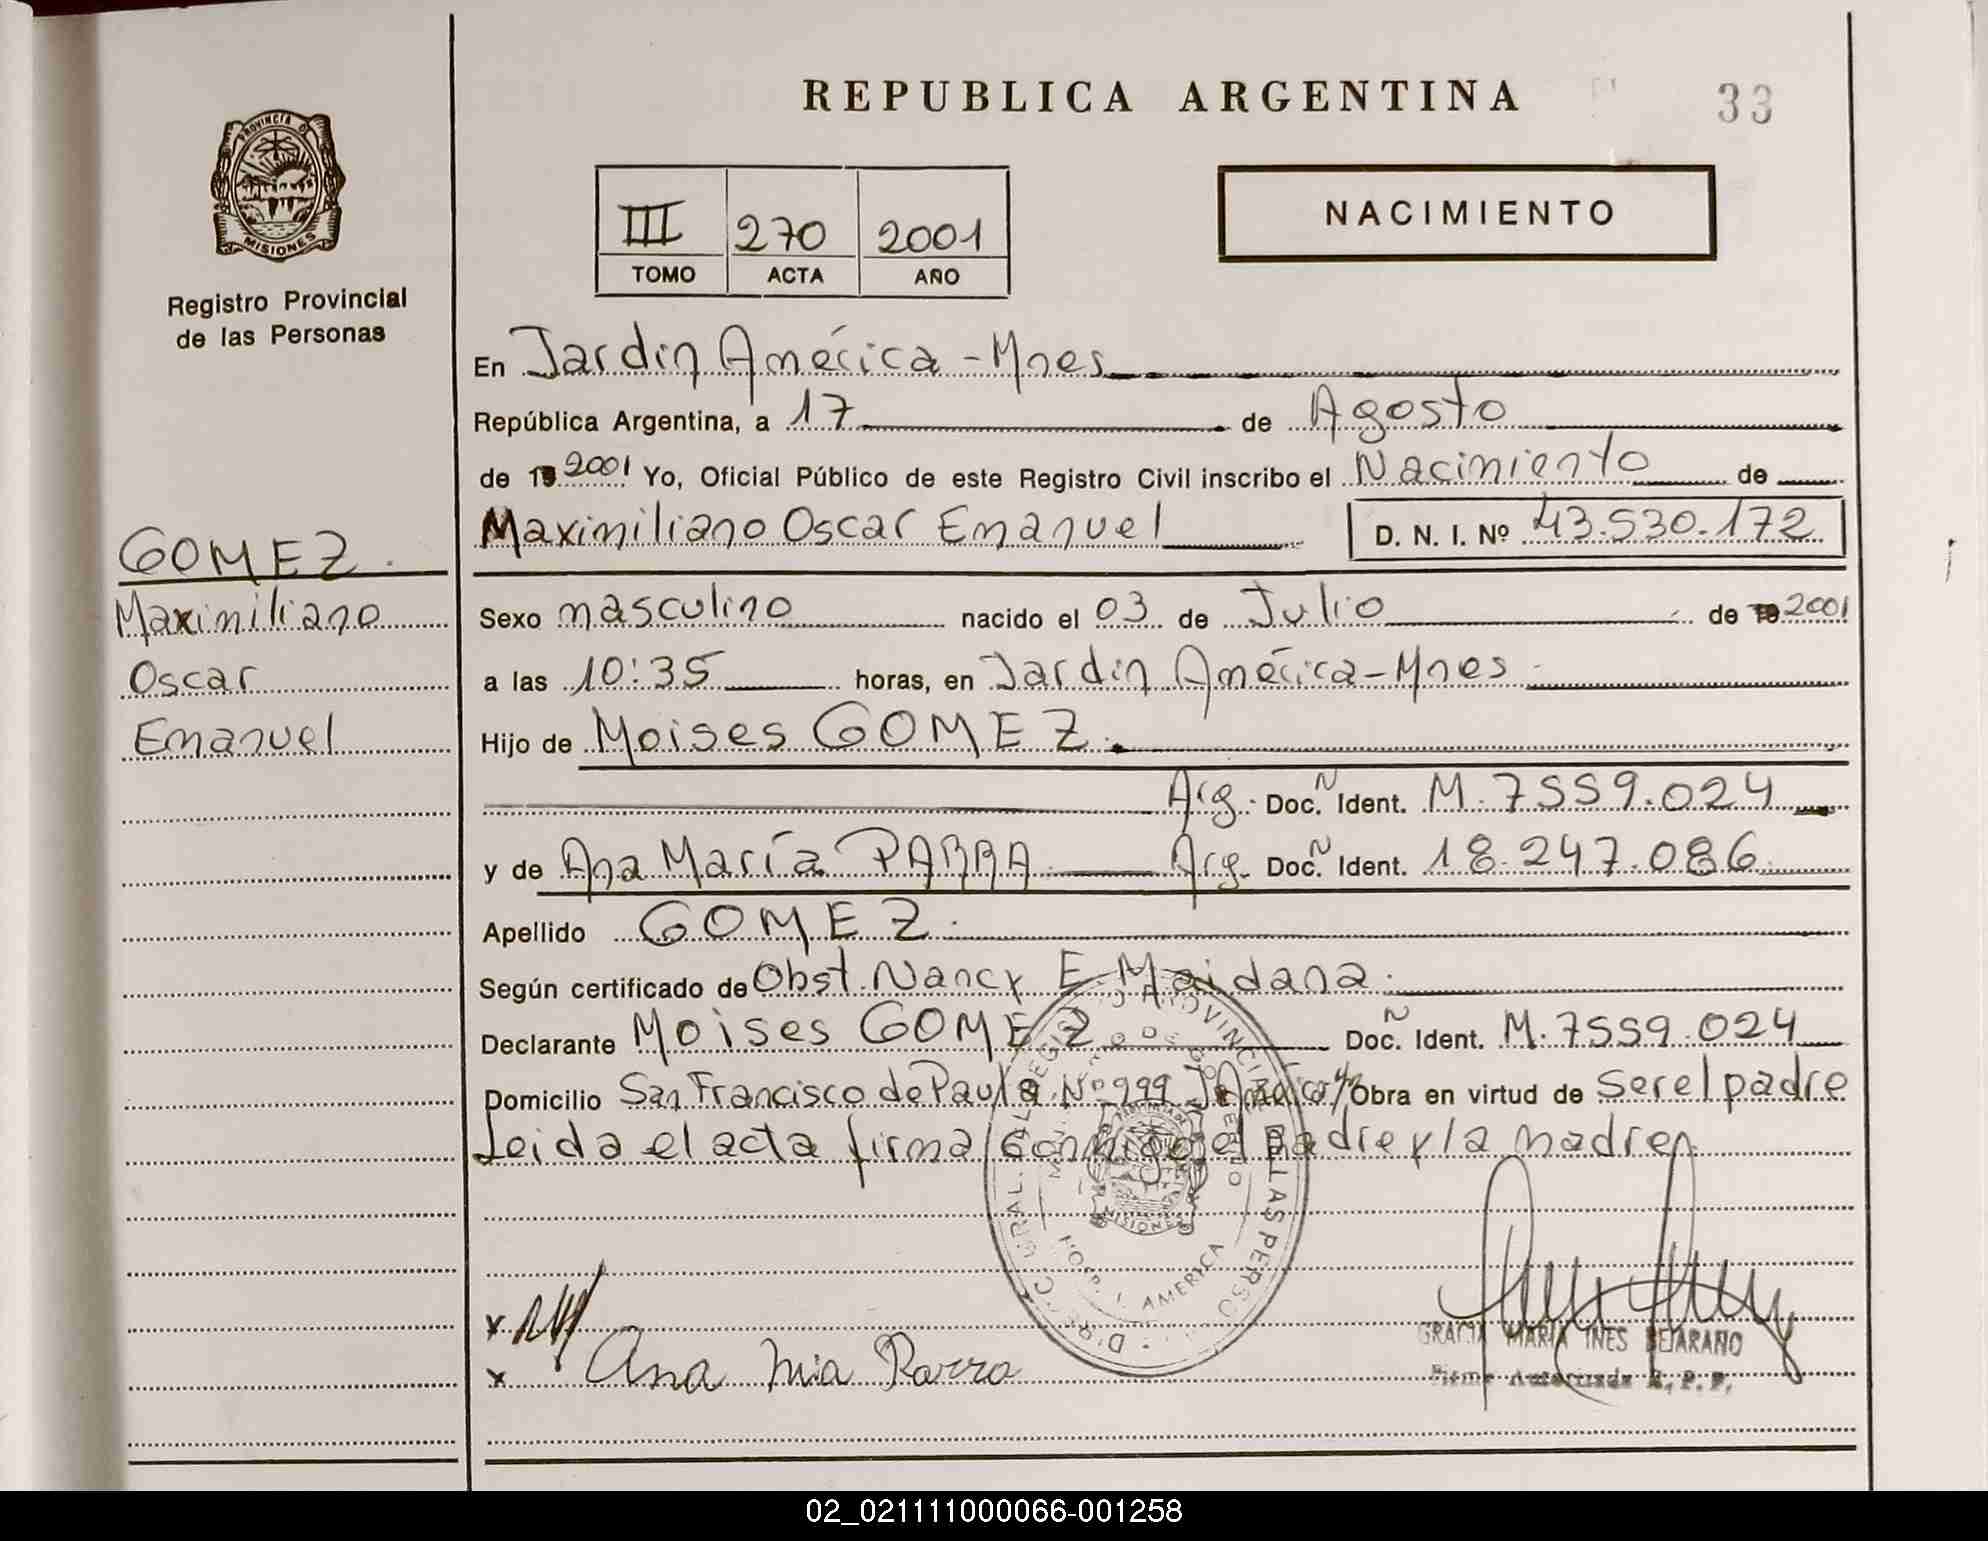 REPUBLICA ARGENTINA
33
PROVINCIA DE
MISIONES
Registro Provincial
de las Personas
III 270 2001
TOMO ACTA AÑO
NACIMIENTO
En Jardín América - Mnes
República Argentina, a 17 de Agosto
de 19 2001 Yo, Oficial Público de este Registro Civil inscribo el Nacimiento de
Maximiliano Oscar Emanuel D. N. I. Nº 43.530.172
GOMEZ
Maximiliano
Oscar
Emanuel
Sexo masculino nacido el 03 de Julio de 19 2001
a las 10:35 horas, en Jardín América - Mnes
Hijo de Moises GOMEZ.
Arg. Doc. N Ident. M. 7559.024
y de Ana María PARRA Arg. Doc. N Ident. 18.247.086
Apellido GOMEZ.
Según certificado de Obst. Nancy E. Maidana.
Declarante Moises GOMEZ Doc. N Ident. M. 7559.024
Domicilio San Francisco de Paula Nº 999 J. América Obra en virtud de ser el padre
Leida el acta firma conmigo el padre y la madre
x
x Ana Mia Parra
HOSP. J. AMERICA
GRACIA MARIA INES BEJARANO
Firma Autorizada R. P. P.
02_021111000066-001258